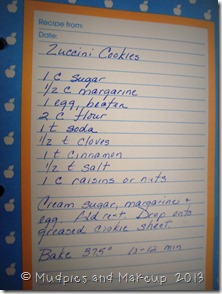 Recipe from:
Date:
Zuccini Cookies
1 c sugar
1/2 c margarine
1 egg, beaten
2 c flour
1 t soda
1/2 t cloves
1 t cinnamon
1/2 t salt
1 c raisins or nuts
Cream sugar, margarine +
egg. Add rest. Drop onto
greased cookie sheet
Bake 375° 10-12 min
© Mudpies and Makeup 2013